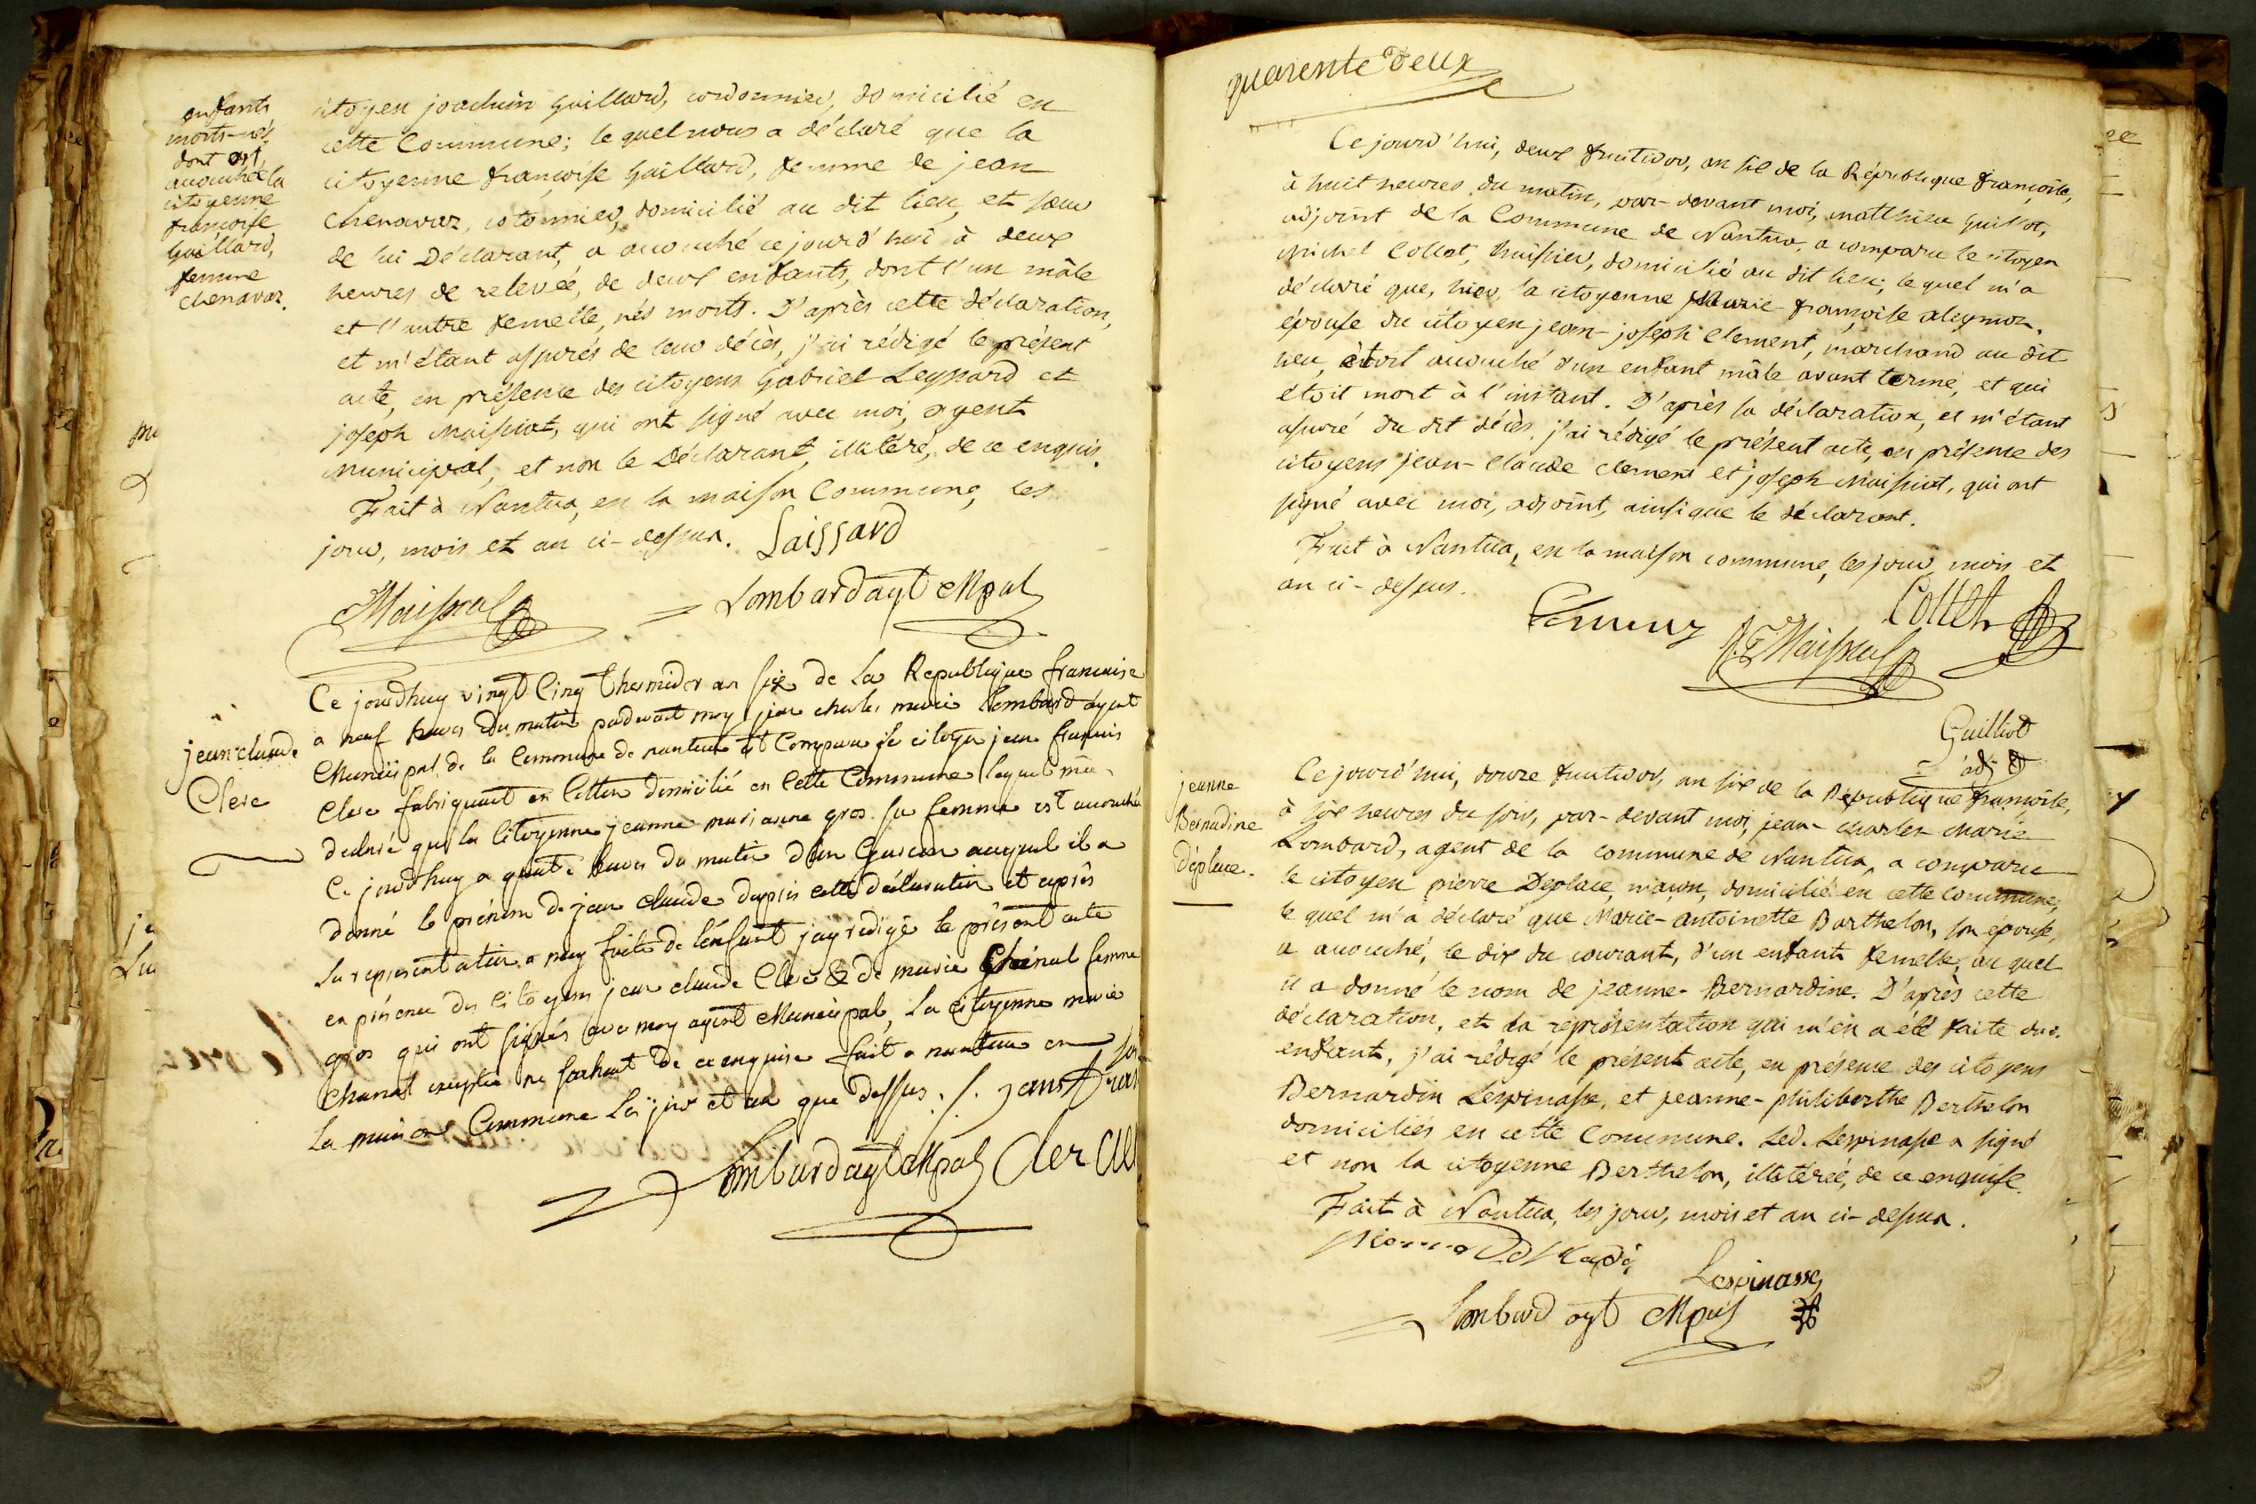 enfants
morts-nés,
dont est
accouchée la
citoyenne
françoise
Gaillard,
femme
Chenavaz.
citoyen joachim Gaillard, cordonnier, domicilié en
cette Commune; lequel nous a déclaré que la
citoyenne françoise Gaillard, femme de jean
Chenavaz, cotonnier, domicilié au dit lieu, et sœur
de lui Déclarant, a accouché cejourd'hui à deux
heures de relevée, de deux enfants, dont l'un mâle
et l'autre femelle, nés morts. D'après cette déclaration,
et m'étant assurés de leur décès, j'ai rédigé le présent
acte, en présence des citoyens Gabriel Leyssard et
joseph Maissiat, qui ont signé avec moi, agent
Municipal, et non le Déclarant illétéré, de ce enquis.
Fait à Nantua, en la maison Commune, les
jour, mois et an ci-dessus. Laissard
Maissiat
Lombard agt Mpal
jean claude
Clerc
Ce jourdhuy vingt Cinq thermidor an six de La Republique francaise
a neuf heures du matin pardevant moy jean charles marie Lombard agent
Municipal de la Commune de nantua est Comparu le citoyen jean francois
Clerc fabriquant en Cotton domicilié en Cette Commune lequel m'a
declaré que la Citoyenne jeanne marianne gros sa femme est accouché
Ce jourdhuy a quatre heures du matin d'un Garcon auquel il a
donné le prénom de jean claude dapres cette declaration et après
la representation a moy faite de l'énfant jay redigé le présent acte
en présence des Citoyens jean claude Clerc & de marie Chanal femme
gros qui ont signés avec moy agent Municipal, La Citoyenne marie
Chanal exceptée ne sachant de ce enquise fait a nantua en
la maison Commune les jour et an que dessus
Lombard agt Mpal Clerc
quarente deux
Ce jourd'hui, deux fructidor, an six de la République françoise,
à huit heures du matin, par-devant moi, matthieu Guilliot,
adjoint de la Commune de Nantua, a comparu le citoyen
Michel Collet, huissier, domicilié au dit lieu; lequel m'a
déclaré que, hier, la citoyenne Marie-françoise aleymoz,
épouse du citoyen jean-joseph Clement, marchand au dit
lieu, étoit accouché d'un enfant mâle avant terme, et qui
étoit mort à l'instant. D'après sa déclaration, et m'étant
assuré du dit décès, j'ai rédigé le présent acte, en présence des
citoyens jean-claude clement et joseph Maissiat, qui ont
signé avec moi, adjoint, ainsi que le déclarant.
Fait à Nantua, en la maison commune, les jour, mois et
an ci-dessus.
Collet
Maissiat
Guilliot
adj
jeanne
Bernadine
déplace.
Ce jourd'hui, douze fructidor, an six de la République françoise,
à six heures du soir, par-devant moi, jean-charles Marie
Lombard, agent de la commune de Nantua, a comparu
le citoyen pierre Deplace, maçon, domicilié en cette Commune,
lequel m'a déclaré que Marie-Antoinette Barthelon, son épouse,
a accouché, le dix du courant, d'un enfant femelle, au quel
il a donné le nom de jeanne-Bernardine. D'après cette
déclaration, et la représentation qui m'en a été faite du d.
enfant, j'ai rédigé le présent acte, en présence des citoyens
Bernardin Lespinasse, et jeanne-philiberthe Berthelon
domiciliés en cette Commune. Led. Lespinasse a signé
et non la citoyenne Berthelon, illetérée, de ce enquise.
Fait à Nantua, les jour, mois et an ci-dessus.
Lespinasse
Lombard agt Mpal